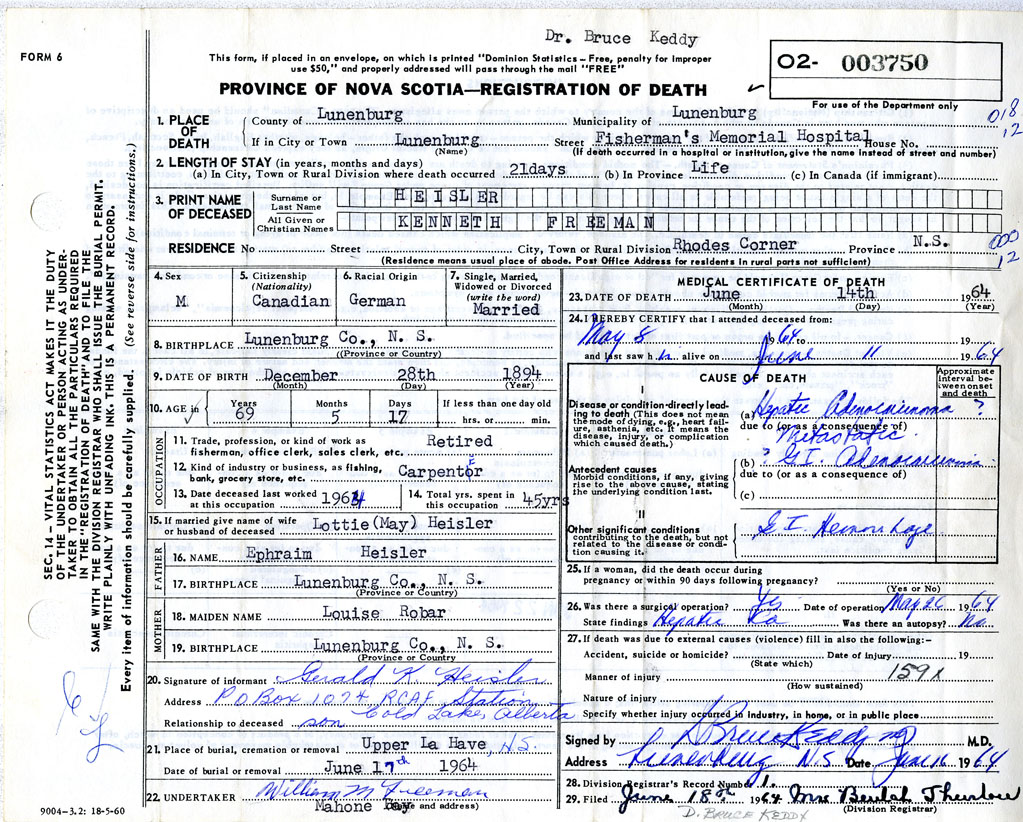 Dr. Bruce Keddy
FORM 6
This form, if placed in an envelope, on which is printed "Dominion Statistics – Free, penalty for improper
use $50," and properly addressed will pass through the mail "FREE"
PROVINCE OF NOVA SCOTIA—REGISTRATION OF DEATH
02- 003750
For use of the Department only
018
12
1. PLACE OF DEATH
County of Lunenburg Municipality of Lunenburg
If in City or Town Lunenburg Street Fisherman's Memorial Hospital House No.
(Name) (If death occurred in a hospital or institution, give the name instead of street and number)
2. LENGTH OF STAY (in years, months and days)
(a) In City, Town or Rural Division where death occurred 21days (b) In Province Life (c) In Canada (if immigrant)
3. PRINT NAME OF DECEASED
Surname or Last Name HEISLER
All Given or Christian Names KENNETH FREEMAN
RESIDENCE No Street City, Town or Rural Division Rhodes Corner Province N.S.
000
12
(Residence means usual place of abode. Post Office Address for residents in rural parts not sufficient)
4. Sex
M
5. Citizenship
(Nationality)
Canadian
6. Racial Origin
German
7. Single, Married,
Widowed or Divorced
(write the word)
Married
8. BIRTHPLACE Lunenburg Co., N. S.
((Province or Country)
9. DATE OF BIRTH December 28th 1894
(Month) (Day) (Year)
10. AGE in Years Months Days If less than one day old
69 5 17 hrs. or min.
OCCUPATION
11. Trade, profession, or kind of work as
fisherman, office clerk, sales clerk, etc. Retired
12. Kind of industry or business, as fishing,
bank, grocery store, etc. Carpenter
13. Date deceased last worked
at this occupation 1964
14. Total yrs. spent in
this occupation 45yrs
15. If married give name of wife
or husband of deceased Lottie (May) Heisler
FATHER
16. NAME Ephraim Heisler
17. BIRTHPLACE Lunenburg Co., N. S.
(Province or Country)
MOTHER
18. MAIDEN NAME Louise Robar
19. BIRTHPLACE Lunenburg Co., N. S.
(Province or Country)
20. Signature of informant Gerald K Heisler
Address PO Box 1074 RCAF Station
Cold Lake, Alberta
Relationship to deceased son
21. Place of burial, cremation or removal Upper La Have, NS
Date of burial or removal June 17th 1964
22. UNDERTAKER William M Freeman
Mahone Bay
(Name and address)
9004–3.2: 18-5-60
MEDICAL CERTIFICATE OF DEATH
23. DATE OF DEATH June 14th 1964
(Month) (Day) (Year)
24. I HEREBY CERTIFY that I attended deceased from:
May 8 1964 to
and last saw him alive on June 11 1964
CAUSE OF DEATH
Approximate
interval be-
tween onset
and death
I
Disease or condition directly lead-
ing to death (This does not mean
the mode of dying, e.g., heart fail-
ure, asthenia, etc. It means the
disease, injury, or complication
which caused death.)
(a) Hepatic Adenocarcinoma ?
due to (or as a consequence of)
Metastatic
Antecedent causes
Morbid conditions, if any, giving
rise to the above cause, stating
the underlying condition last.
(b) ? G I. Adenocarcinoma
due to (or as a consequence of)
(c)
II
Other significant conditions
contributing to the death, but not
related to the disease or condi-
tion causing it.
G I. Hemorrhage
25. If a woman, did the death occur during
pregnancy or within 90 days following pregnancy?
(Yes or No)
26. Was there a surgical operation? Yes Date of operation May 26 1964
State findings Hepatic Ca Was there an autopsy? No
27. If death was due to external causes (violence) fill in also the following:–
Accident, suicide or homicide? Date of injury 19
(State which)
Manner of injury 159x
(How sustained)
Nature of injury
Specify whether injury occurred in industry, in home, or in public place
Signed by D Bruce Keddy MD M.D.
Address Lunenburg N.S Date June 16 1964
28. Division Registrar's Record Number 1.
29. Filed June 18th 1964 Mrs Beulah
(Division Registrar)
D. BRUCE KEDDY
SEC. 14 – VITAL STATISTICS ACT MAKES IT THE DUTY
OF THE UNDERTAKER OR PERSON ACTING AS UNDER-
TAKER TO OBTAIN ALL THE PARTICULARS REQUIRED
IN THE "REGISTRATION OF DEATH" AND TO FILE THE
SAME WITH THE DIVISION REGISTRAR WHO SHALL ISSUE THE BURIAL PERMIT.
WRITE PLAINLY WITH UNFADING INK. THIS IS A PERMANENT RECORD.
Every item of information should be carefully supplied. (See reverse side for instructions.)